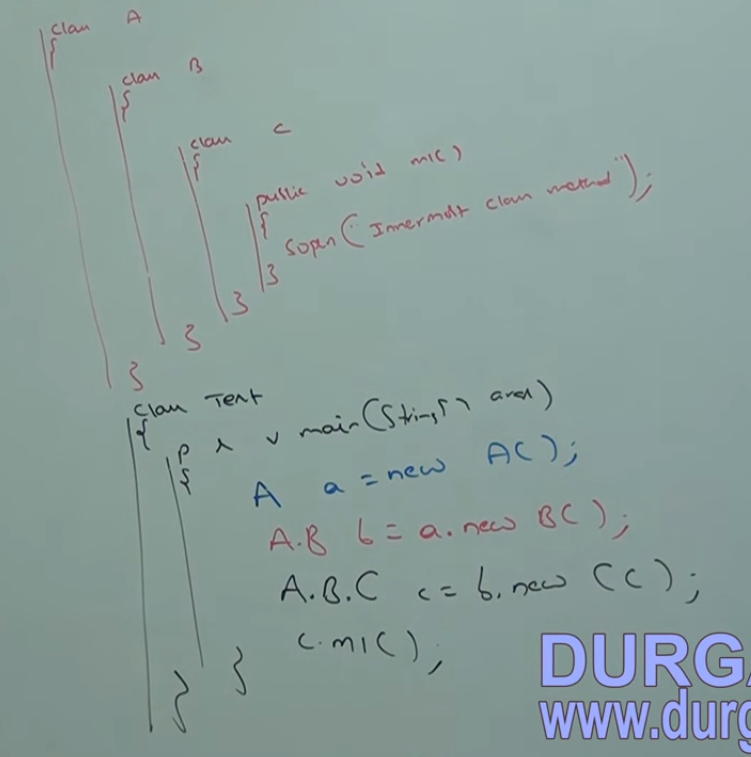 class A
{
class B
{
class C
{
public void m1()
{
Sopln("Innermost class method");
}
}
}
}
class Test
{
p s v main(String[] args)
{
A a = new A();
A.B b = a.new B();
A.B.C c = b.new C();
c.m1();
}
}
DURGA
www.durg